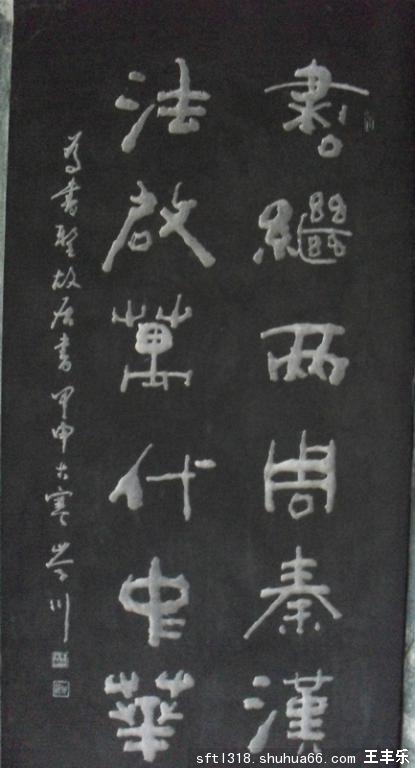 書繼兩周秦漢
法啟萬代中華
為書聖故居書甲申大寒岑川
sftl318.shuhua66.com 王丰乐